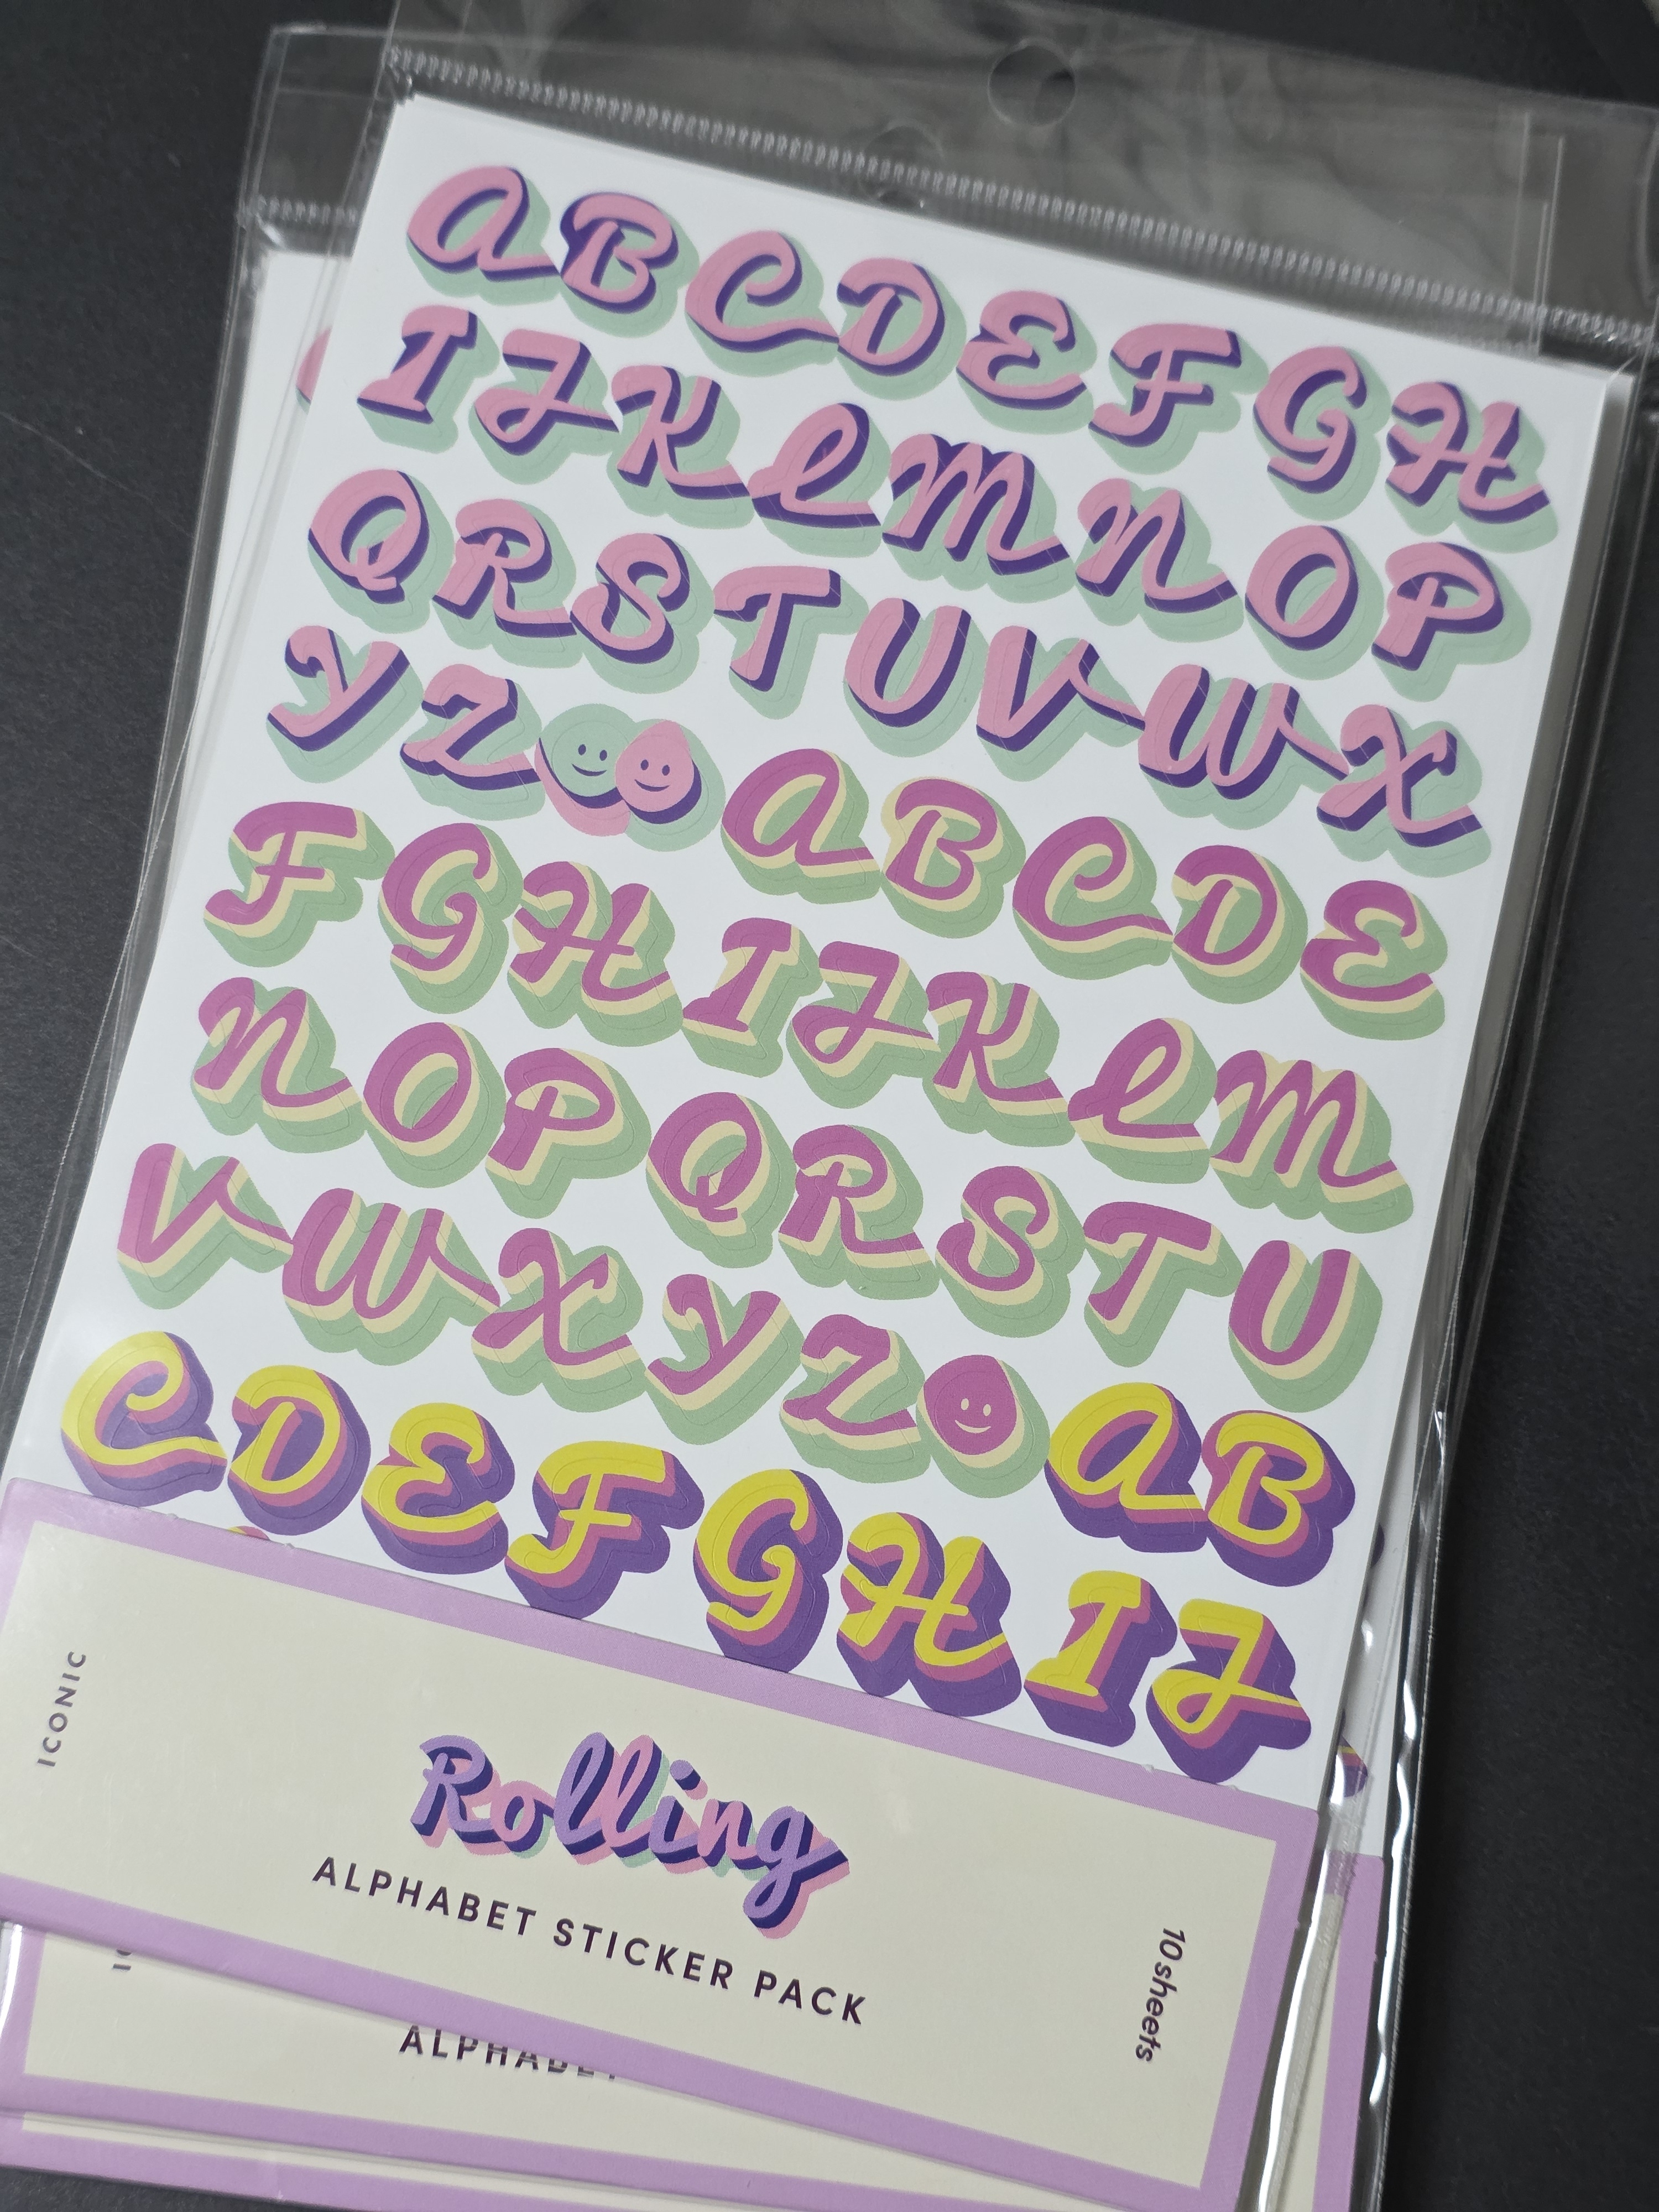 ABCDEFGH
IJKLMNOP
QRSTUVWX
YZABCDE
FGHIJKLM
NOPQRSTU
VWXYZAB
CDEFGHIJ
ICONIC
Rolling
ALPHABET STICKER PACK
10sheets